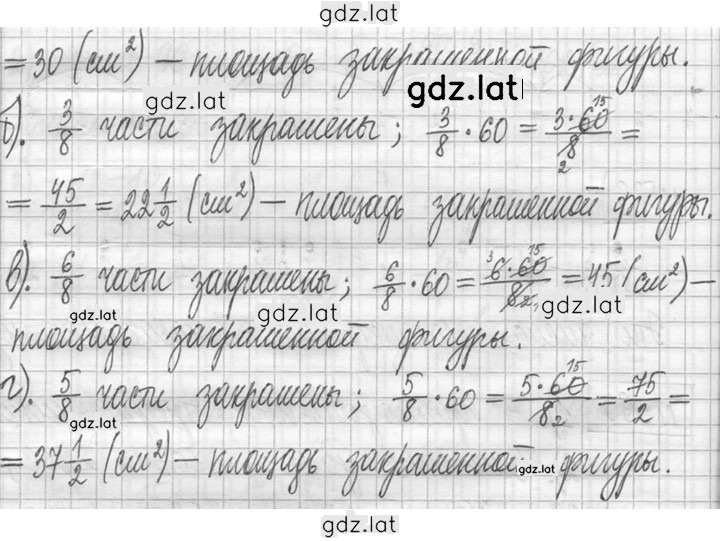 gdz.lat
= 30 (см²) – площадь закрашенной фигуры.
gdz.lat
gdz.lat
б). 3/8 части закрашены; 3/8 · 60 = 3 · 60 15 / 8 2 =
= 45/2 = 22 1/2 (см²) – площадь закрашенной фигуры.
в). 6/8 части закрашены; 6/8 · 60 = 3 6 · 60 15 / 8 2 1 = 45 (см²) –
gdz.lat gdz.lat
площадь закрашенной фигуры.
г). 5/8 части закрашены; 5/8 · 60 = 5 · 60 15 / 8 2 = 75/2 =
gdz.lat gdz.lat
= 37 1/2 (см²) – площадь закрашенной gdz.lat фигуры.
gdz.lat